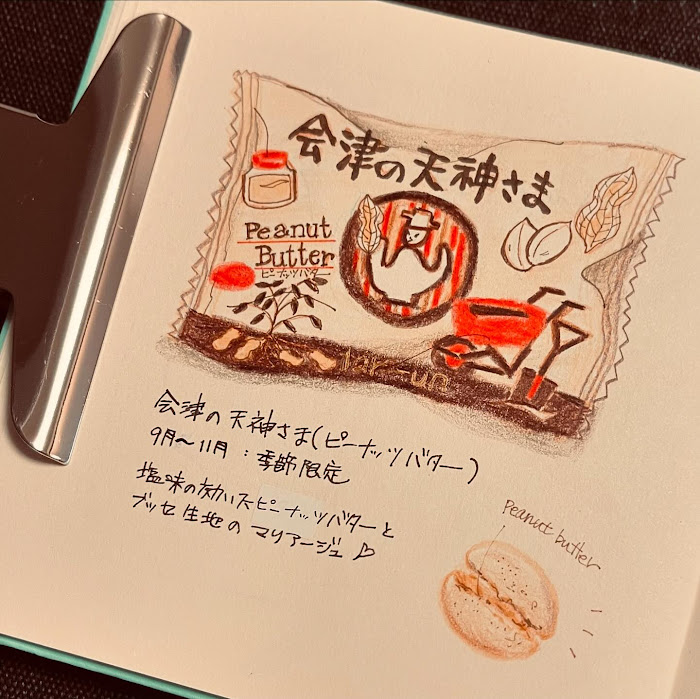 会津の天神さま
Peanut
Butter
ピーナッツバター
tar-un
会津の天神さま(ピーナッツバター)
9月〜11月:季節限定
塩味の効いたピーナッツバターと
ブッセ生地のマリアージュ♡
Peanut butter